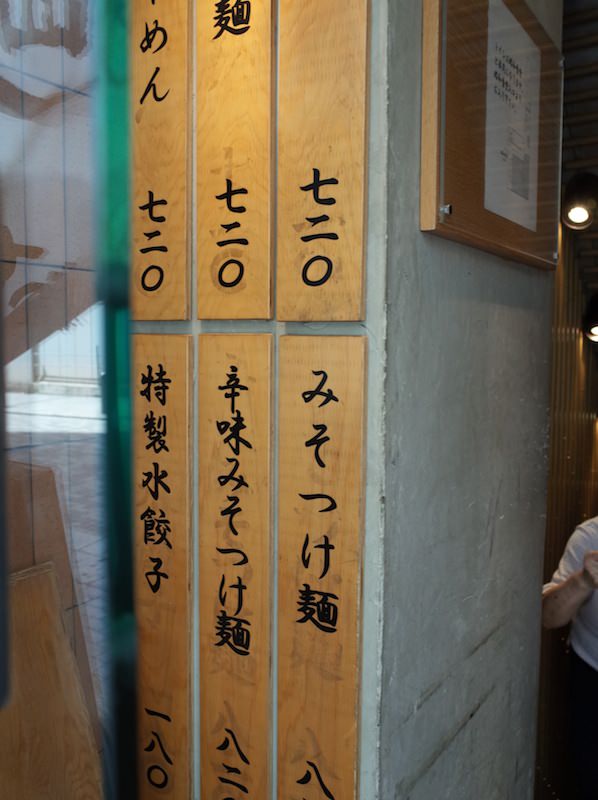 七二〇
麺 七二〇
めん 七二〇
みそつけ麺 八
辛味みそつけ麺 八二〇
特製水餃子 一八〇